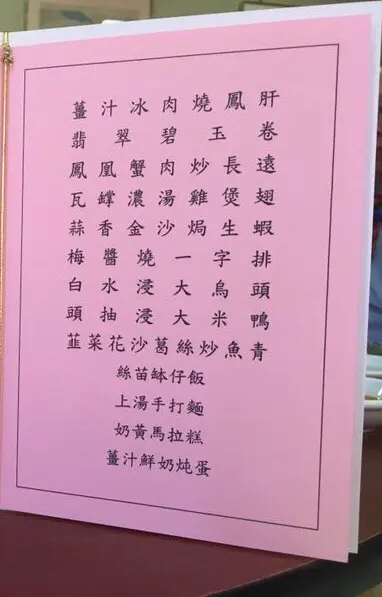 薑汁冰肉燒鳳肝
翡翠碧玉卷
鳳凰蟹肉炒長遠
瓦罉濃湯雞煲翅
蒜香金沙焗生蝦
梅醬燒一字排
白水浸大烏頭
頭抽浸大米鴨
韮菜花沙葛絲炒魚青
絲苗缽仔飯
上湯手打麵
奶黃馬拉糕
薑汁鮮奶炖蛋